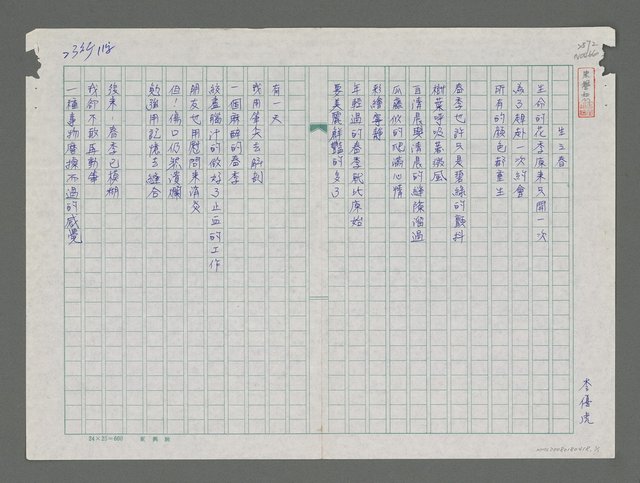 生之春
生命的花季原来只開一次
為了趕赴一次約會
所有的顏色都重生
春季也許只是碧綠的顫抖
樹葉呼吸著微風
自清晨與清晨的縫隙溜過
瓜藤似的爬滿心情
彩繪寧靜
年輕過的春季就比原始
要美麗鮮豔的多了
有一天
我用筆尖去解剖
一個麻醉的春季
絞盡腦汁的做好了止血的工作
朋友也用慰問來消炎
但！傷口仍然潰爛
勉強用記憶去縫合
後來！春季已模糊
我卻不敢再動筆
一種事物磨擦不過的感覺
李優虎
24×25=600